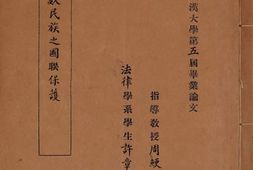 漢大學第五屆畢業論文
指導教授周綆
法律學系學生許章
數民族之國聯保護